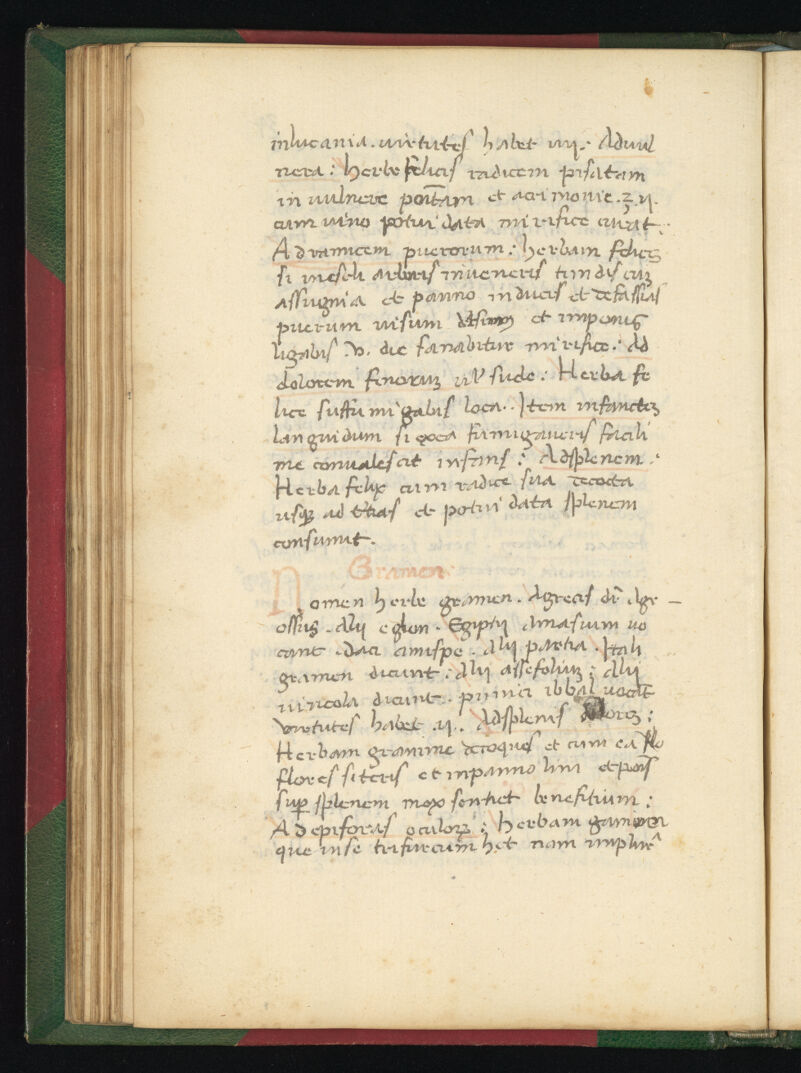 inlucania. uirtutes habet iiij: Aduul
nera: herbe felicis radicem pisatam
in uulnere poītam et acrimonie.ʒ.ij.
cum uino potui data mirifice curat.
Adramicem puerorum: herbam felicis
si inesculi arboris inueneris tundis cuȝ
assugnia et panno inducis et defassias
puerum uisum et imponis
ligabis .v. die sanabitur mirifice: Ad
dolorem sude: Herba fe
lice suffumigabis loca.. Item infantes
languidum si fumigaueris facili
me conualescit infans: Adsplenem.
Herba felix cum radice sua decocta
usqȝ ad t̄tias et potui data splenem
consumit.
Gramen
Nomen herbe gramen. Agrecis dr̄ Agr
ossus. Alij egion. Egiptij Amasium uo
cant. daci amispe. Alij partia. Itali
gramen dicunt: Alij assefoliuȝ: Alij
uincola dicunt. punici ibbal uocāt
virtutes habet .ij. Adsplenis doloreȝ:
Herbam gramine decoques et cum ea flo
flores siteris et inpanno lini etponis
sup̄ splenem mox sentiet benefitium:
Ad epiforas oculorȝ: herbam
que inse trifurcum h̄et nam